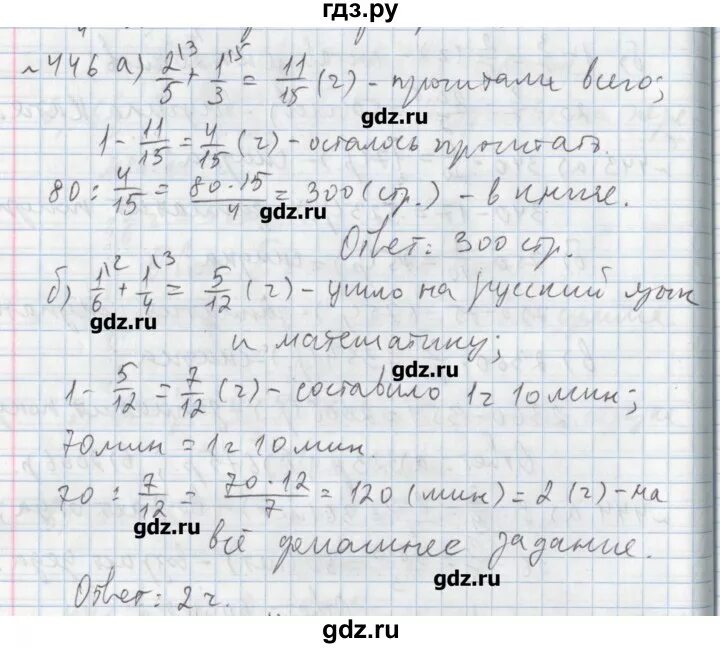 гдз.ру
№446 а) 2\3/5 + 1\5/3 = 11/15 (ч) - прочитали всего;
gdz.ru
1 - 11/15 = 4/15 (ч) - осталось прочитать.
80 : 4/15 = 80·15/4 = 300 (стр.) - в книге.
gdz.ru
Ответ: 300 стр.
б) 1\2/6 + 1\3/4 = 5/12 (ч) - ушло на русский язык
и математику;
gdz.ru
1 - 5/12 = 7/12 (ч) - составило 1ч 10 мин;
70 мин = 1ч 10 мин.
70 : 7/12 = 70·12/7 = 120 (мин) = 2 (ч) - на
gdz.ru
всё домашнее задание.
gdz.ru
Ответ: 2 ч.
gdz.ru